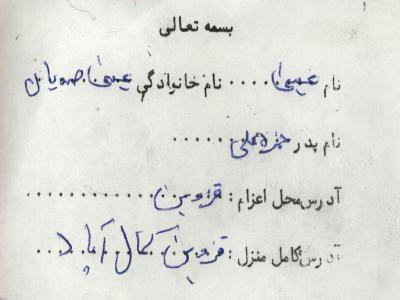 بسمه تعالی
نام عیسی .... نام خانوادگی
نام پدر حمزه علی ......
آدرس محل اعزام : قزوین ............
آدرس کامل منزل : قزوین . کمال آباد ...